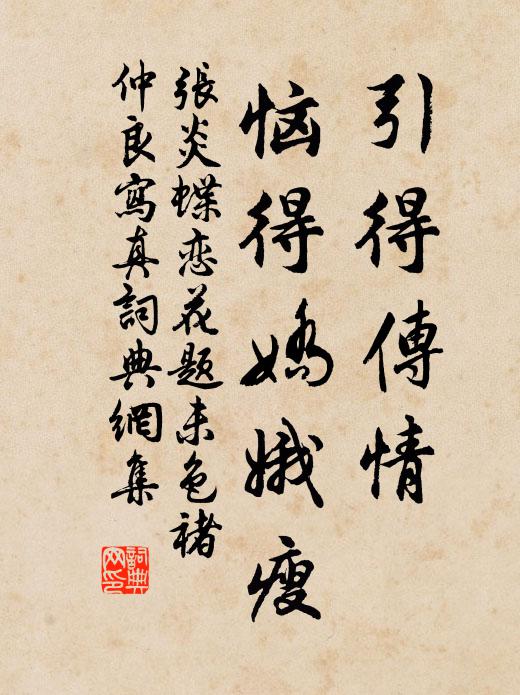 引得傳情
惱得嬌娥瘦
張炎蝶恋花题末色褚
仲良寫真詞典網集
詞典网印